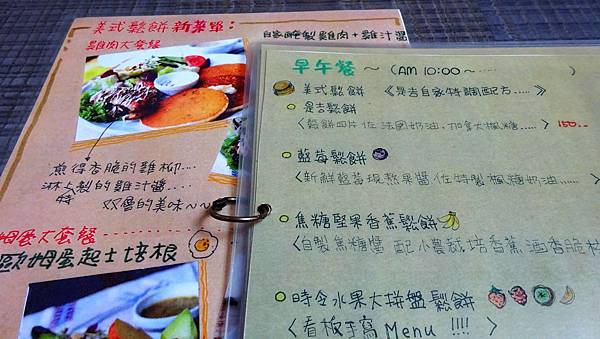 美式鬆餅新菜單:
自家醃製雞肉+雞汁醬
雞肉大套餐
煎得香脆的雞柳....
淋上特製的雞汁醬....
双層的美味~~
姆蛋大套餐
歐姆蛋起士培根
早午餐~(AM 10:00~......)
美式鬆餅《是吉自家特調配方.....》
是吉鬆餅
〈鬆餅四片佐法國奶油,加拿大楓糖.....〉150...
藍莓鬆餅
〈新鮮藍莓現熬果醬佐特製楓糖奶油.......
焦糖堅果香蕉鬆餅
〈自製焦糖醬 配小農栽培香蕉 洒香脆
時令水果大拼盤鬆餅
〈看板手寫 Menu !!!!〉